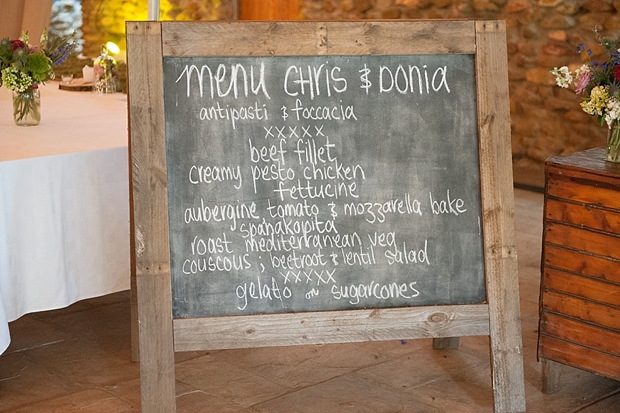 menu CHRIS & DONIA
antipasti & foccacia
xxxxx
beef fillet
creamy pesto chicken
fettucine
aubergine, tomato & mozzarella bake
spanakopita
roast mediterranean veg
couscous ; beetroot & lentil salad
xxxxx
gelato on sugarcones